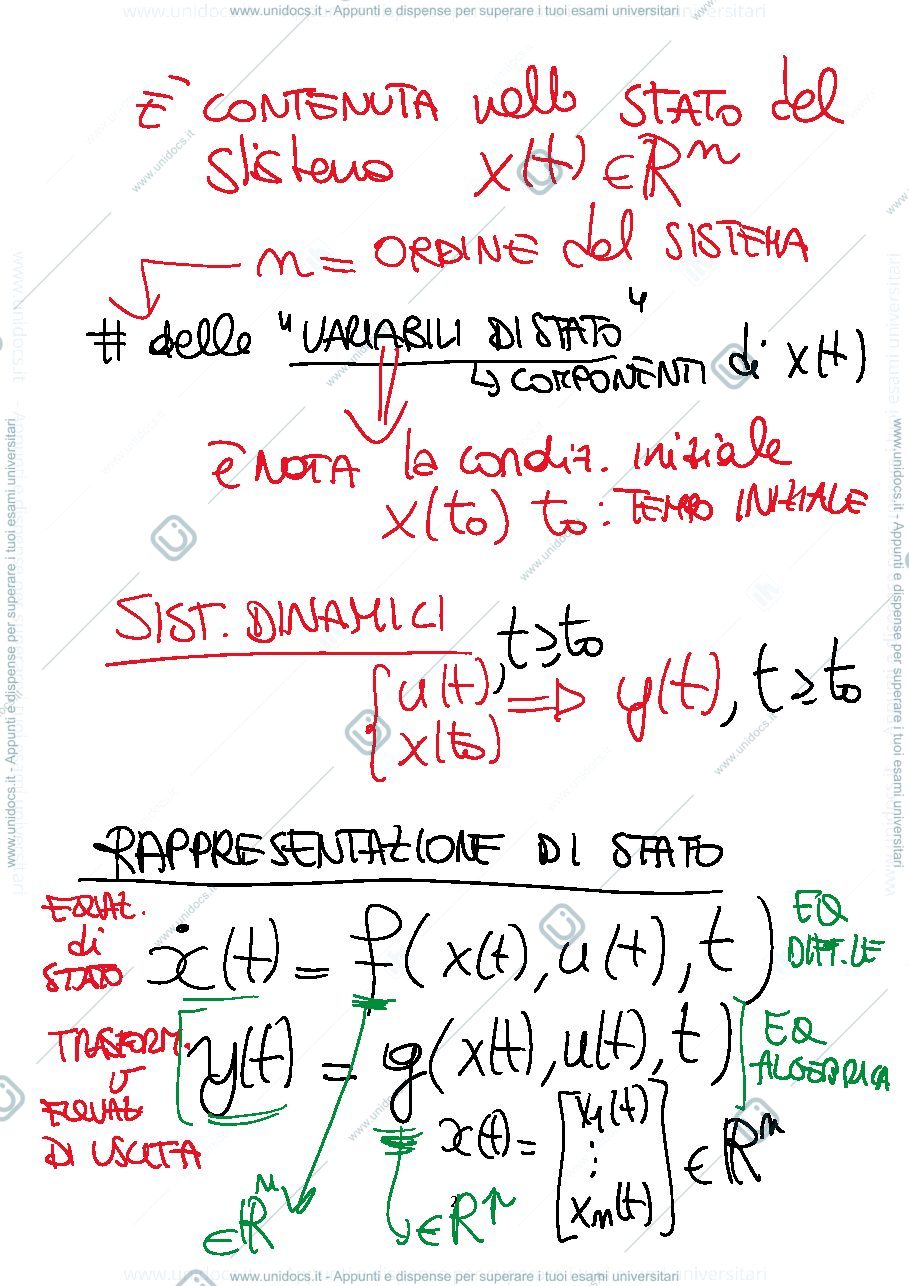 www.unidocs.it - Appunti e dispense per superare i tuoi esami universitari
È CONTENUTA nello STATO del
sistema x(t) ∈ ℝⁿ
n = ORDINE del SISTEMA
# delle "VARIABILI DI STATO"
↳ COMPONENTI di x(t)
è NOTA la condiz. iniziale
x(t₀) t₀: TEMPO INIZIALE
SIST. DINAMICI
{ u(t), t ≥ t₀
x(t₀) ⇒ y(t), t ≥ t₀
RAPPRESENTAZIONE DI STATO
EQUAZ. di STATO ẋ(t) = f(x(t), u(t), t) EQ DIFF.LE
TRASFORM. O EQUAZ DI USCITA y(t) = g(x(t), u(t), t) EQ ALGEBRICA
x(t) = [x₁(t) ⋮ xₙ(t)] ∈ ℝⁿ
∈ ℝⁿ ∈ ℝᵖ
www.unidocs.it - Appunti e dispense per superare i tuoi esami universitari